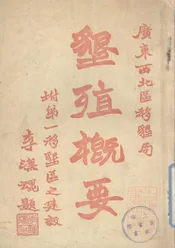 廣東西北區移墾局
墾殖概要
附第一移墾區之建設
李漢魂題